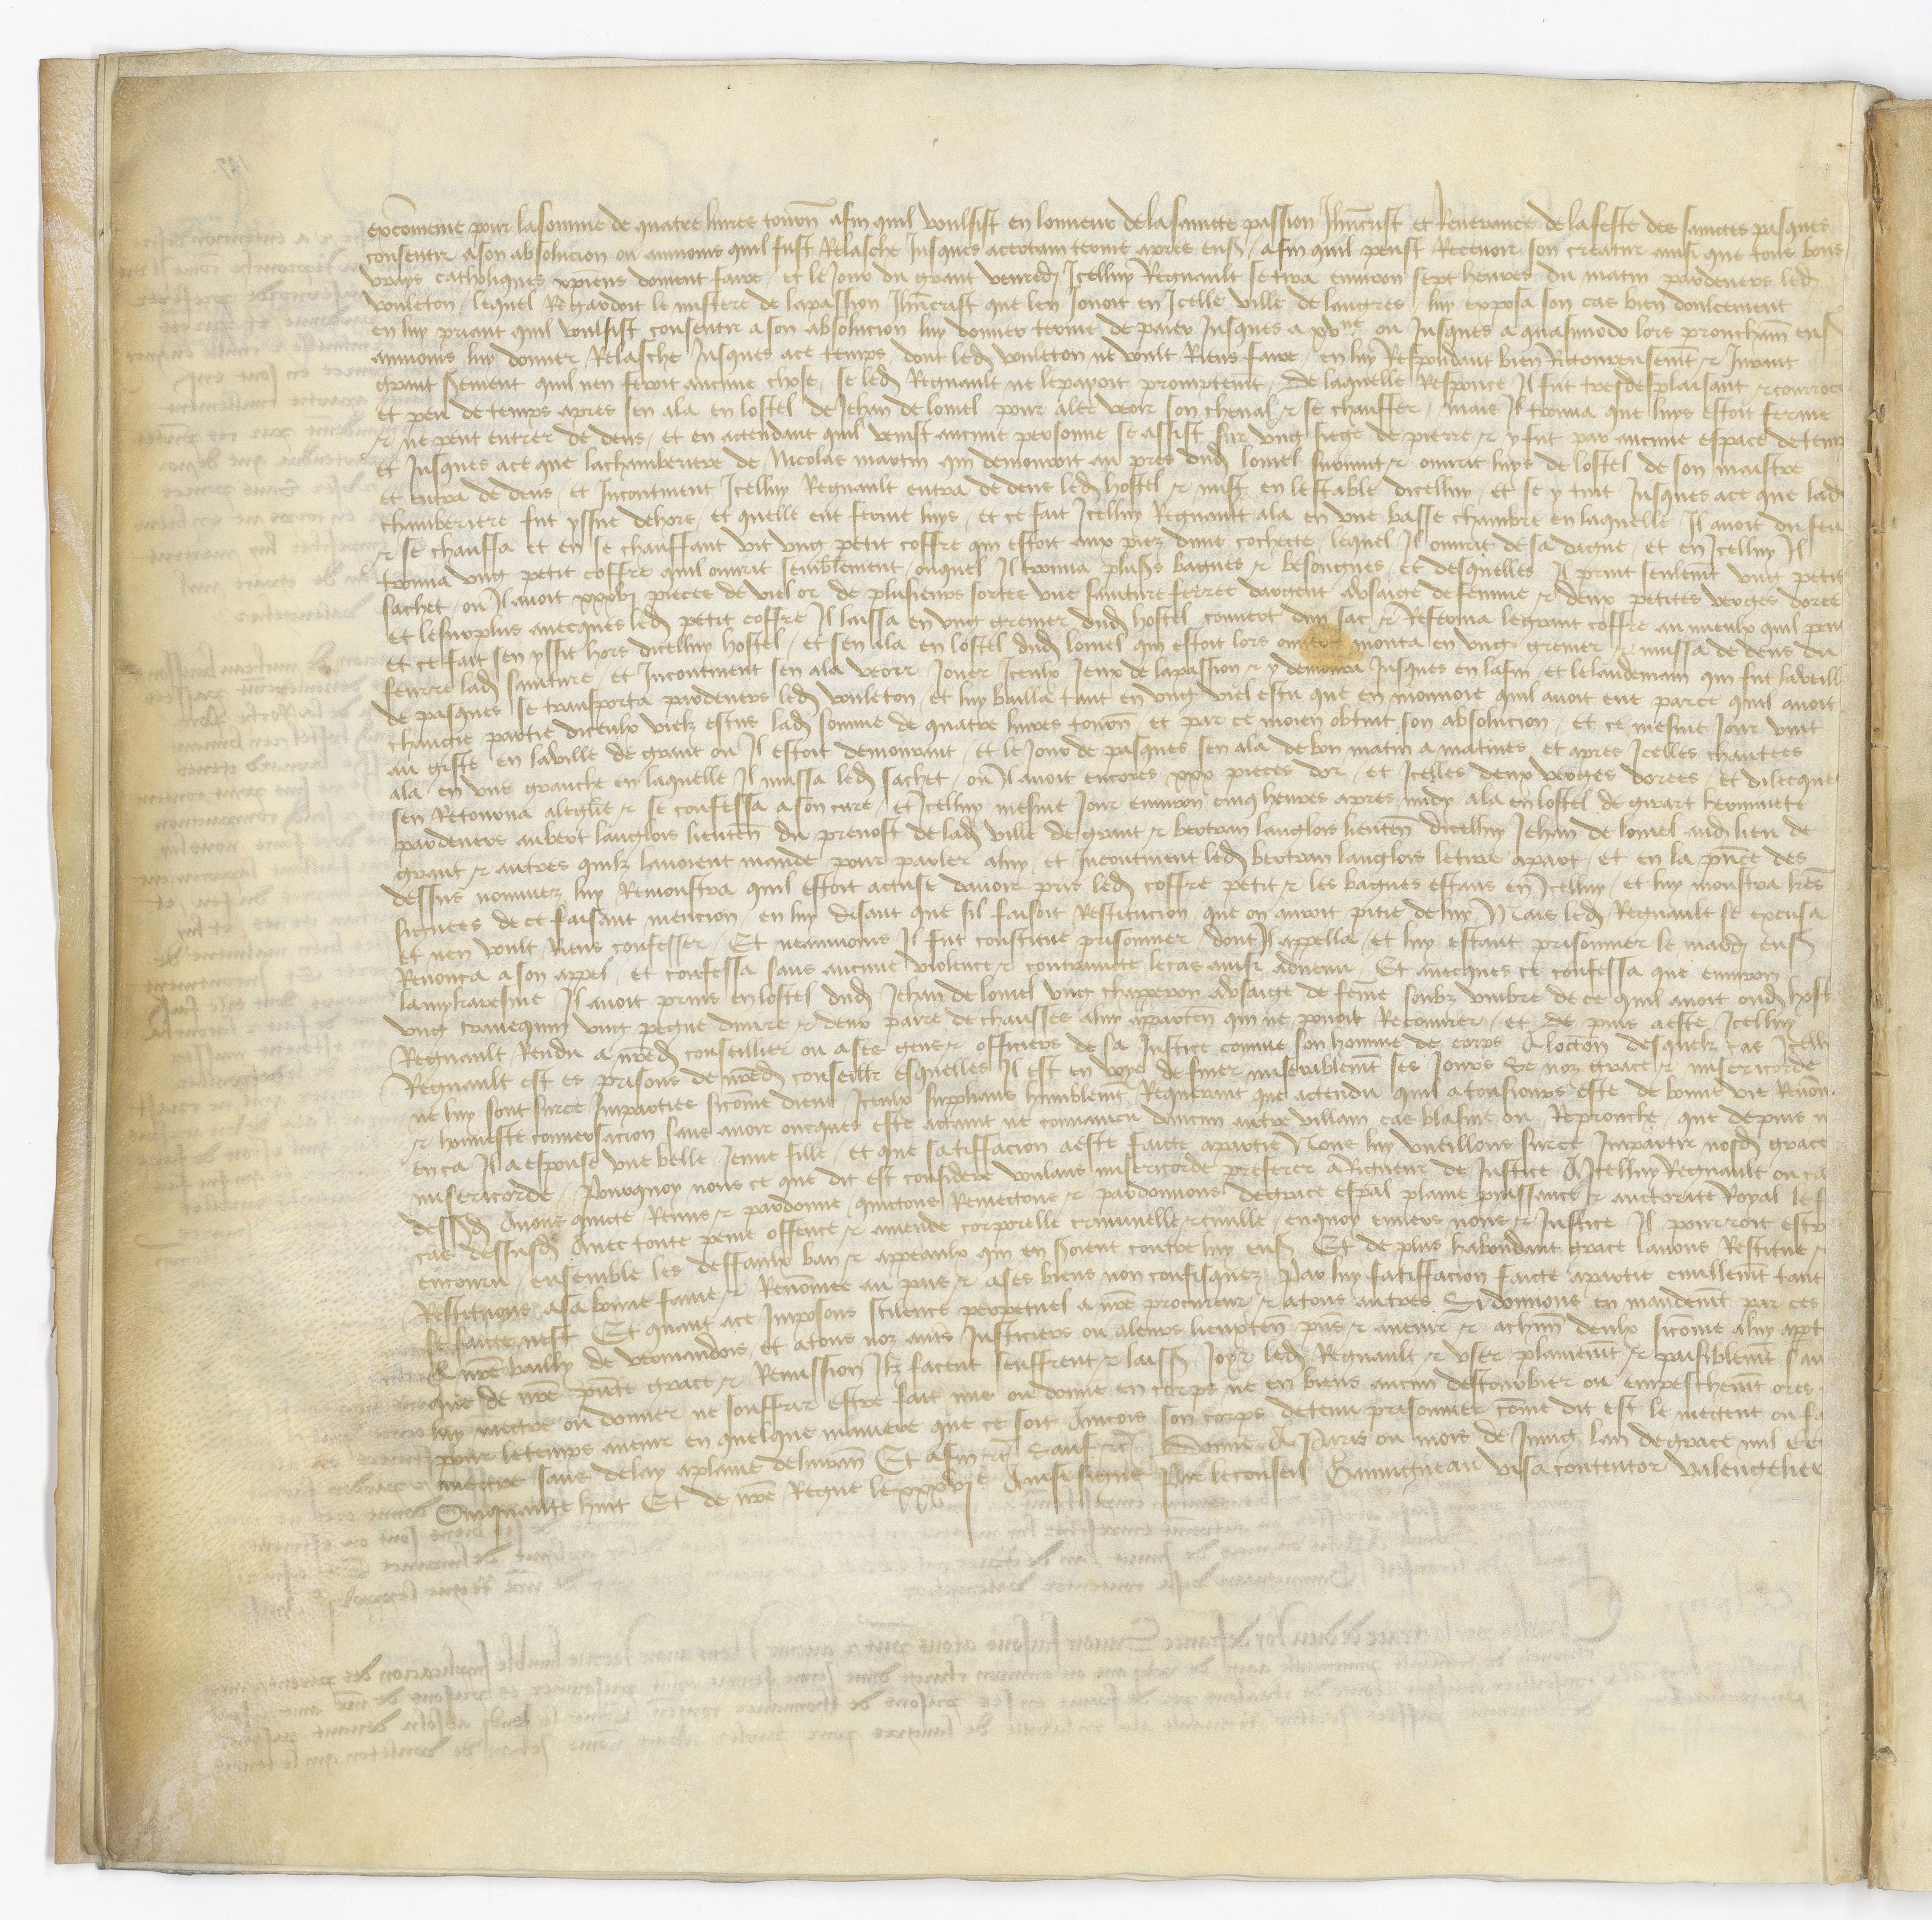 excōmenie pour lasomme de quatre livres tourn̄ afin quil voulsist en lonneur delasaincte passion Jhūcrist et Reverance de lafeste des sainctes pasques
consentir ason absolucion ou aumoins quil fust Relasche Jusques acertain terme apres ens̄ / afin quil peust Recevoir son createur ainsi que tous bons
vrays catholiques xpīens doivent faire / et le Jour du grant vendredj Jcelluy Regnault se tira environ sept heures du matin pardevers led
vouleton / lequel Regardoit le mistere de lapassion Jhūcrist que len Jouoit en Jcelle ville de langres / luy exposa son cas bien doulcement
en luy priant quil voulsist consentir a son absolucion luy donner terme de paier Jusques a xvne ou Jusques a quasimodo lors prouchain̄ ens̄
aumoins luy donner Relasche Jusques ace temps / dont led vouleton ne voult Riens faire / en luy Respondant bien Rigoureusemt̄ & Jurant
grant serment quil nen feroit aucune chose / se led Regnault ne lepaioit promptemt̄ / de laquelle Responce Jl fut tresdesplaisant & courrou
et peu de temps apres sen ala en lostel de Jehan de lomel pour aler veoir son cheval & se chauffer / mais Jl trouva que luys estoit ferme
& ne peut entrer de dens / et en actendant quil venist aucune personne se assist sur ung siege de pierre & y fut par aucune espace de tem
et Jusques ace que lachamberiere de Nicolas martin qui demouroit au pres dud lomel survint & ouvrit luys de lostel de son maistre
et entra de dens / et Jncontinent Jcelluy Regnault entra de dens led hostel & mist en lestable dicelluy / et se y tint Jusques ace que lad
chamberiere fut yssue dehors / et quelle eut ferme luys / et ce fait Jcelluy Regnault ala en une basse chambre en laquelle Jl avoit du feu
& se chauffa et en se chauffant vit ung petit coffre qui estoit aux piez dune cochecte / lequel Jl ouvrit de sa dague / et en Jcelluy Jl
trouva ung petit coffre quil ouvrit semblement / ouquel Jl trouva plus̄s bagues & besongnes / et desquelles Jl print seulemt̄ ung petit
sachet / ou Jl avoit xxxvj pieces de viel or de plusieurs sortes une sainture ferree dargent adusaige defemme & deux petites verges doree
et lesurplus avecques led petit coffre Jl laissa en ung grenier dud hostel couvert dun sac & Referma legrant coffre au mieulx quil peut
et ce fait sen yssit hors dicelluy hostel / et sen ala en lostel dud lomel qui estoit lors ouvert monta en ung grenier & mussa de dens du
feurre lad sainture / et Jncontinent sen ala veoir Jouer Jceulx Jeux de lapassion & y demoura Jusques en lafin / et le landemain qui fut laveill
de pasques se transporta pardevers led vouleton / et luy bailla tant en ung viel escu que en monnoie quil avoit eue parce quil avoit
changie partie diceulx vielz escus lad somme de quatre livres tourn̄ et par ce moien obtint son absolucion / et ce mesme Jour vint
au giste en laville de grant ou Jl estoit demourant / et le Jour de pasques sen ala de bon matin a matines et apres Jcelles chantees
ala en une granche en laquelle Jl mussa led sachet / ou Jl avoit encores xxx pieces dor / et Jcelles deux verges dorees / et dilecques
sen Retourna aleglīe & se confessa ason cure / et Jcelluy mesme Jour environ cinq heures apres midy ala en lostel de girart
pardevers aubert langlois lieuten̄ du prevost de lad ville de grant & bertran langlois lieuten̄ dicelluy Jehan de lomel aud lieu de
grant & autres quilz lavoient mande pour parler aluy / et Jncontinent led bertran langlois letira apart / et en la pn̄ce des
dessus nommez luy Remonstra quil estoit accuse davoir pris led coffre petit & les bagues estans en Jcelluy / et luy monstra lrēs
signees de ce faisant mencion / en luy disant que sil faisoit Restitucion que on auroit pitie de luy / Mais led Regnault se excusa
et nen voult Riens confesser / Et neantmoins Jl fut constitue prisonnier / dont Jl appella / et luy estant prisonnier le mardj ens̄
Renonca a son appel / et confessa sans aucune violence & contraincte lecas ainsi advenu / Et avecques ce confessa que environ
lamykaresme Jl avoit prins en lostel dud Jehan de lomel ung chapperon adusaige de fēme soubz umbre de ce quil avoit oud host
ung ung pegne divire & deux paire de chausses aluy apparten̄ qui ne povoit Recouvrer / et de puis aeste Jcelluy
Regnault Rendu a nr̄ed conseillier ou ases gens & officiers de sa Justice comme son homme de corps A loccon desquelz cas Jcellu
Regnault est es prisons de nr̄ed conseillr esquelles Jl est en voye de finer miserablemt̄ ses Jours se noz grace & misericorde
ne luy sont surce Jmparties sicōme dient Jceulx supplians humblemt̄ Requerant que actendu quil atousiours este de bonne vie Renōm
& honneste conversacion sans avoir oncques este actaint ne convaincu daucun autre villain cas blasme ou Reprouche / que depuis n
enca Jl a espouse une belle Jeune fille / et que satiffacion aeste faicte apartie Nous luy vueillons surce Jmpartir nosd grace
misericorde / Pourquoy nous ce que dit est considere voulans misericorde preferer a Rigueur de Justice A Jcelluy Regnault ou ca
dessusd Avons quicte Remis & pardonne / quictons Remectons & pardonnons degrace esp̄al plaine puissance & auctorite Royal le f
cas dessusd Avec toute peine offence & amende corporelle criminelle & civille / enquoy envers nous & Justice Jl pourroit estr
encouru / ensemble les deffaulx ban & appeaulx qui en seroient contre luy ens̄ Et de plus habondant grace lavons Restitue &
Restituons asa bonne fame & Renōmee au pais & ases biens non confisquez Par luy satiffacion faicte apartie civillemt̄ tant
se faicte nest Et quant ace Jmposons scilence perpetuel a nr̄e procureur & atous autres Si donnons en mandemt̄ par ces
A nr̄e bailly de vermandois et atous noz aut̄s Justiciers ou aleurs lieuxten̄ pn̄s & avenir & achūn deulx sicōme aluy appt
que de nr̄e pn̄te grace & Remission Jlz facent seuffrent & laiss̄ Joyr led Regnault & user plainemt̄ & paisiblemt̄ san
luy mectre ou donner ne souffrir estre fait mis ou donne en corps ne en biens aucun destourbier ou empeschemt̄ ores
pour letemps avenir en quelque maniere que ce soit Aincois son corps detenu prisonnier cōme dit est le mectent ou fa
mectre sans delay aplaine delivran̄ Et afin &c̄ Sauf &c̄ Donne A Paris ou mois de Juing lan degrace mil CCCC
Cinquante huit Et de nr̄e Regne lexxxvje Ainsi signe Par leconseil visa contentor valengelier